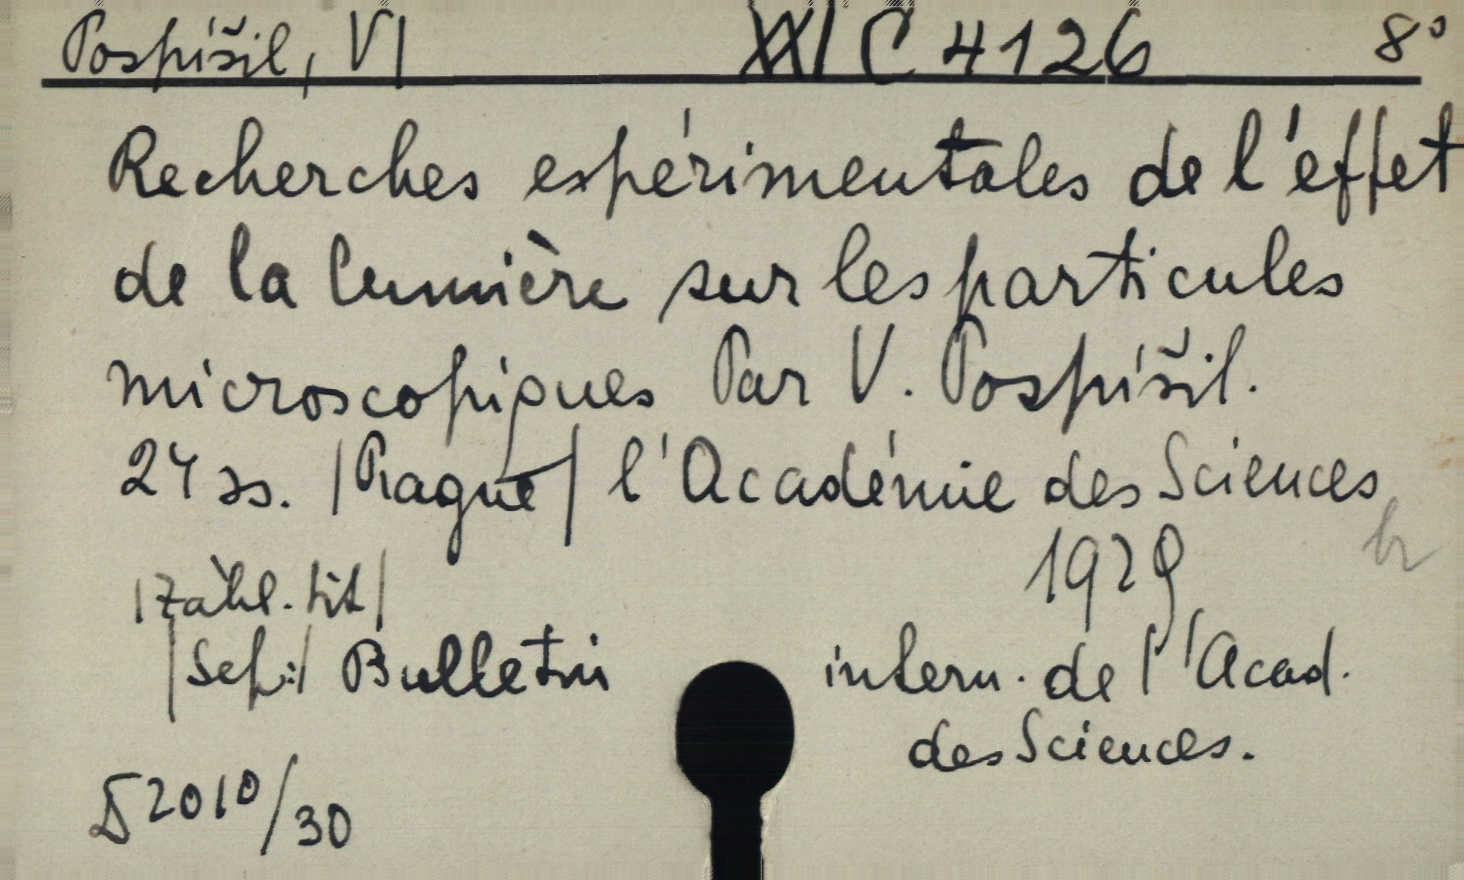 Pospíšil, Vl XXI C 4126 8°
Recherches expérimentales de l'effet
de la lumière sur les particules
microscopiques Par V. Pospíšil.
24 ss. |Prague| l'Académie des Sciences
1929
|záhl. tit|
|Sep:| Bulletin intern. de l'Acad.
des Sciences.
D 2010/30